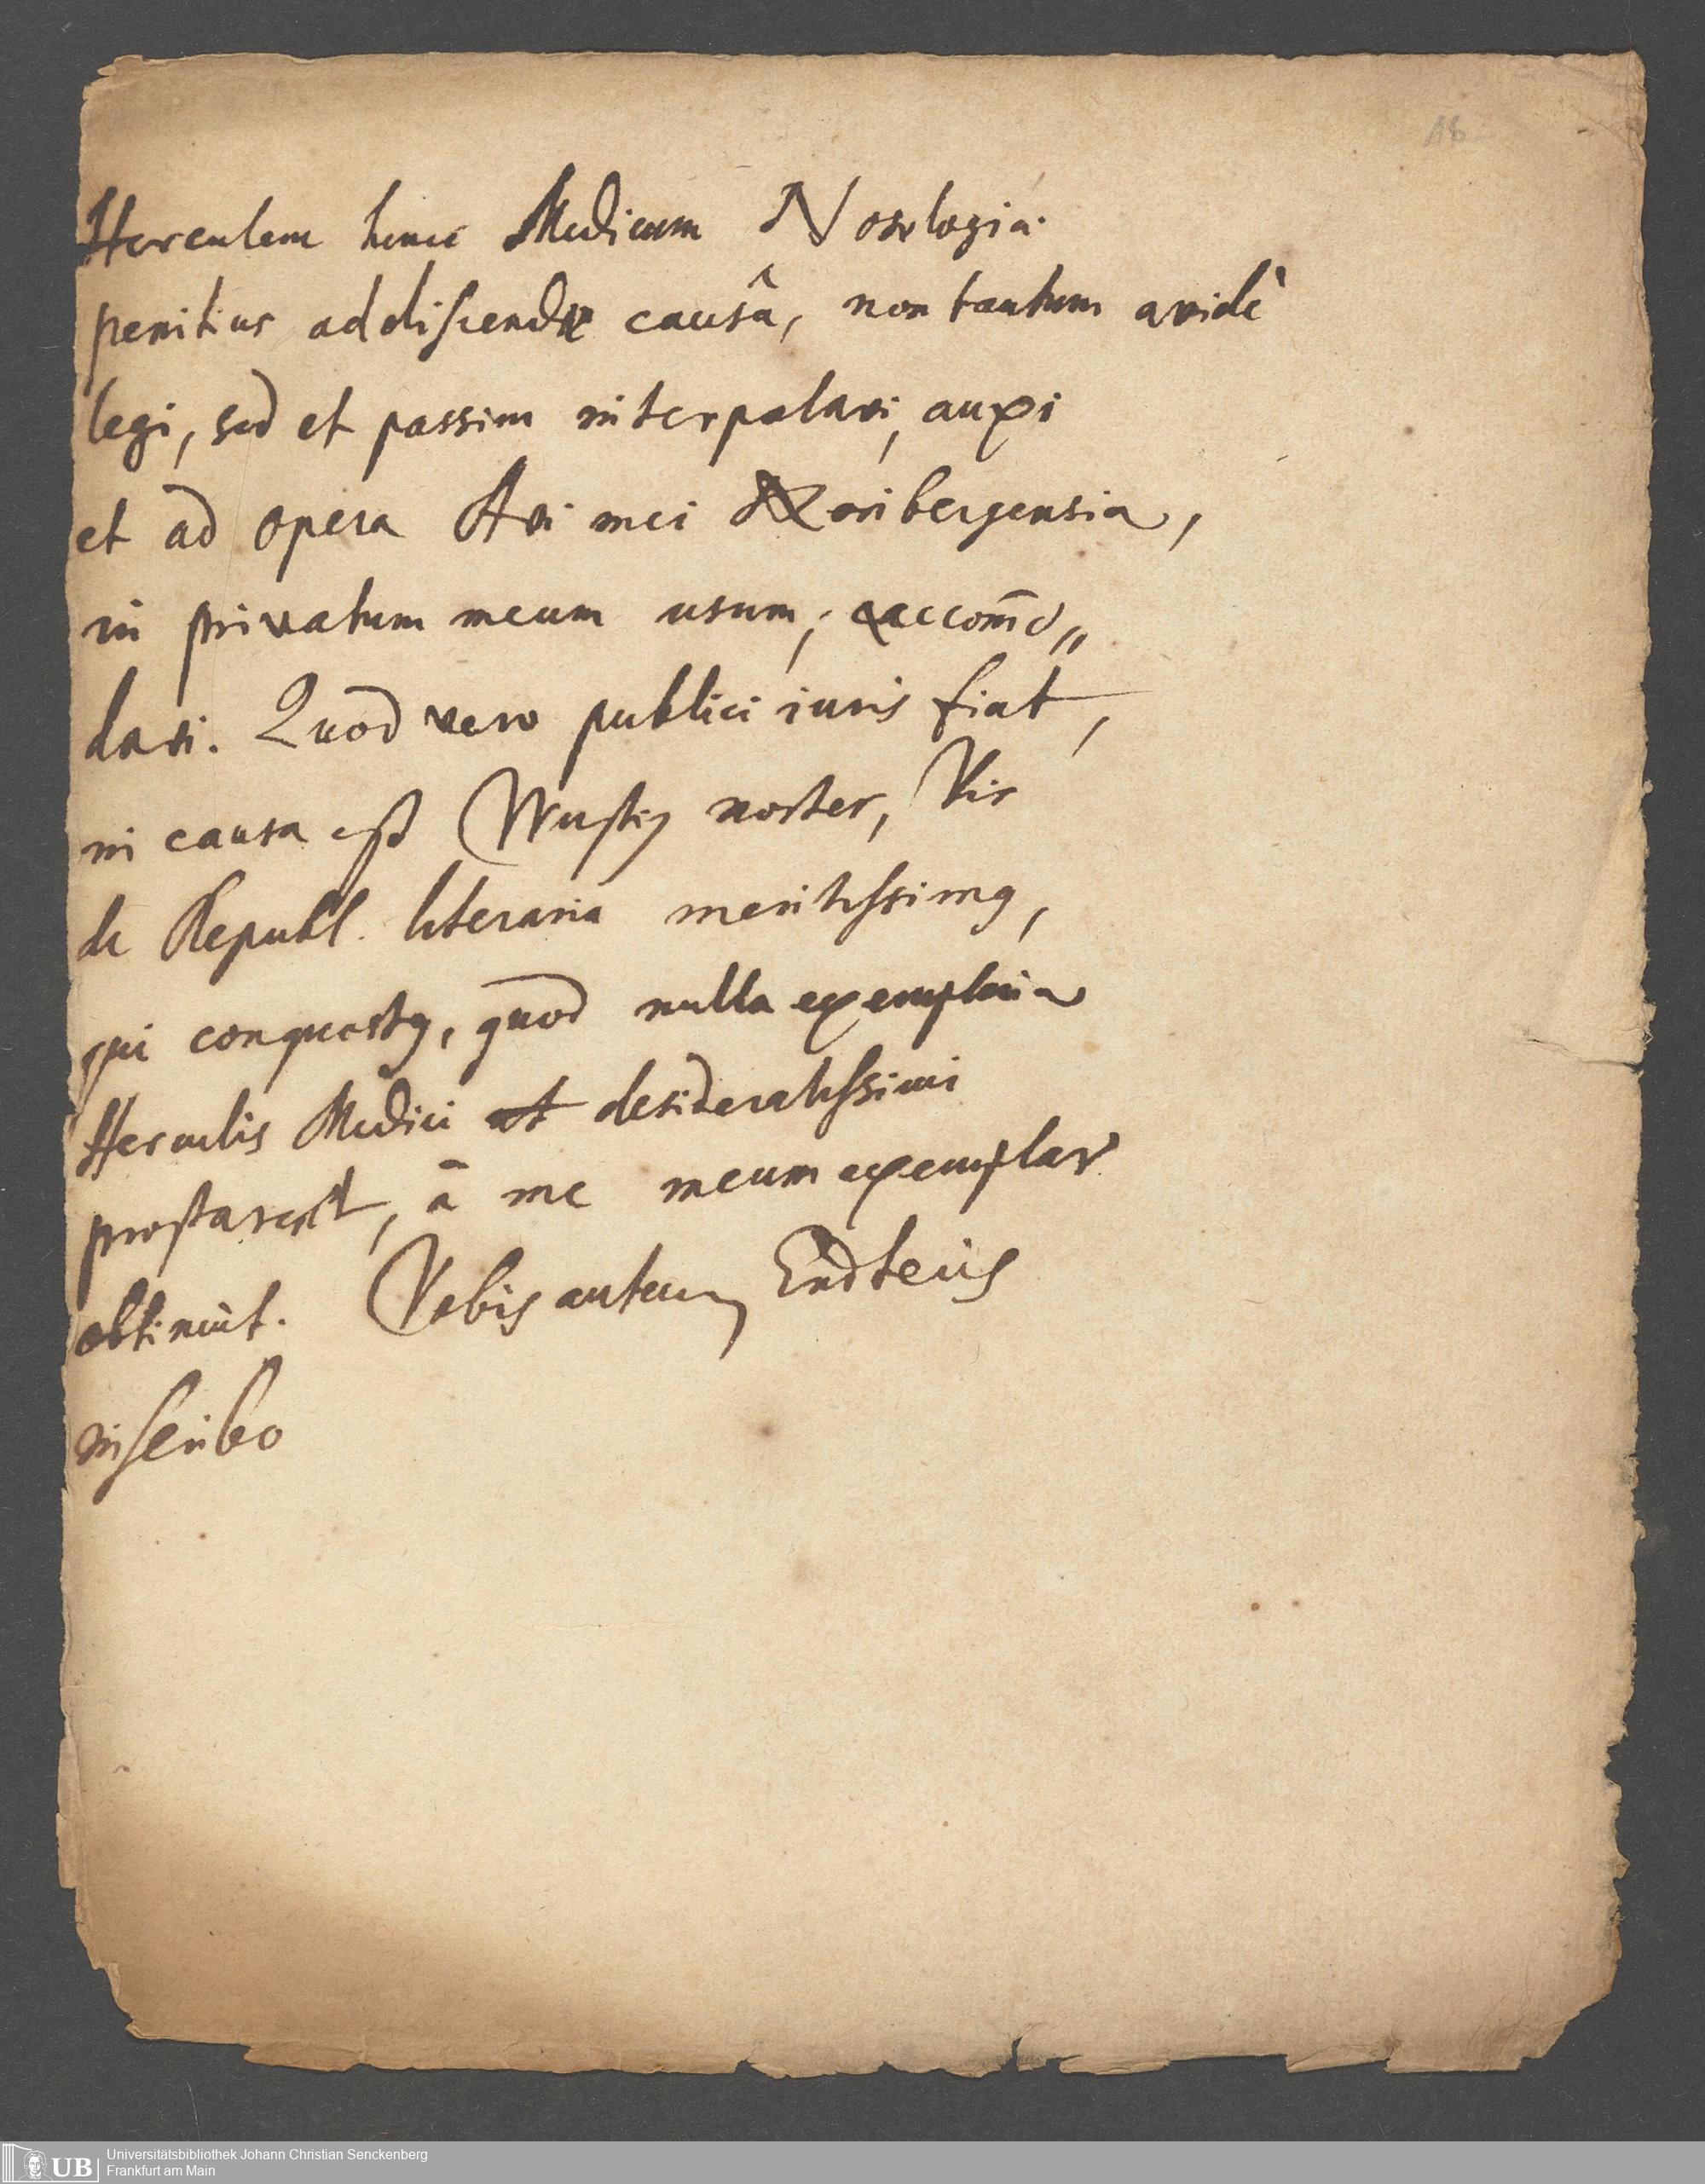 18
Herculem hunc Medicum Nosologiá
penitius addiscendæ causâ, non tantum avidè
legi, sed et passim interpolavi, auxi
et ad opera Avi mei Noribergensia,
in privatum meum usum, accom̄o„
davi. Quod vero publici iuris fiat,
in causa est Wustiꝰ noster, Vir
de Republ. literaria meritissimꝰ,
qui conquestꝰ, quod nulla exemplaria
Herculis Medici desideratissimi
prostarent, à me meum exemplar
obtinuit. Vobis autem Endteris
inscribo
UB Universitätsbibliothek Johann Christian Senckenberg
Frankfurt am Main